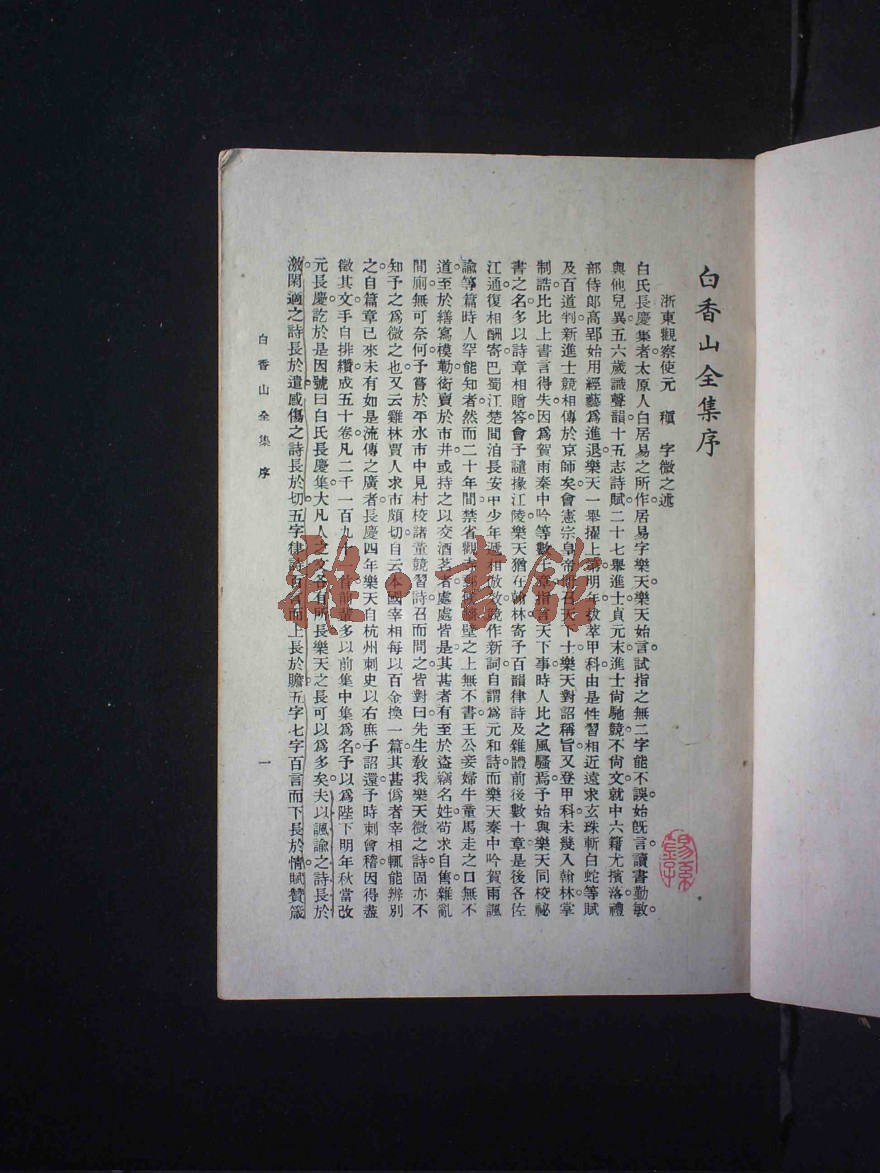 白香山全集序
浙東觀察使元　稹　字微之述
白氏長慶集者太原人白居易之所作居易字樂天樂天始言試指之無二字能不誤始旣言讀書勤敏
與他兒異五六歲識聲韻十五志詩賦二十七舉進士貞元末進士尙馳競不尙文就中六籍尤擯落禮
部侍郎高郢始用經藝爲進退樂天一舉擢上第明年拔萃甲科由是性習相近遠求玄珠斬白蛇等賦
及百道判新進士競相傳於京師矣會憲宗皇帝策召天下士樂天對詔稱旨又登甲科未幾入翰林掌
制誥比比上書言得失因爲賀雨秦中吟等數十章指言天下事時人比之風騷焉予始與樂天同校祕
書之名多以詩章相贈答會予譴掾江陵樂天猶在翰林寄予百韻律詩及雜體前後數十章是後各佐
江通復相酬寄巴蜀江楚間洎長安中少年遞相倣效競作新詞自謂爲元和詩而樂天秦中吟賀雨諷
諭等篇時人罕能知者然而二十年間禁省觀寺郵候牆壁之上無不書王公妾婦牛童馬走之口無不
道至於繕寫模勒衒賣於市井或持之以交酒茗者處處皆是其甚者有至於盜竊名姓苟求自售雜亂
間廁無可奈何予嘗於平水市中見村校諸童競習詩召而問之皆對曰先生敎我樂天微之詩固亦不
知予之爲微之也又云雞林賈人求市頗切自云本國宰相每以百金換一篇其甚僞者宰相輒能辨別
之自篇章已來未有如是流傳之廣者長慶四年樂天自杭州刺史以右庶子詔還予時刺會稽因得盡
徵其文手自排纘成五十卷凡二千一百九十一首前輩多以前集中集爲名予以爲陛下明年秋當改
元長慶訖於是因號曰白氏長慶集大凡人之文各有所長樂天之長可以爲多矣夫以諷諭之詩長於
激閑適之詩長於遣感傷之詩長於切五字律詩百言而上長於贍五字七字百言而下長於情賦贊箴
白香山全集　序
一
雅·書館